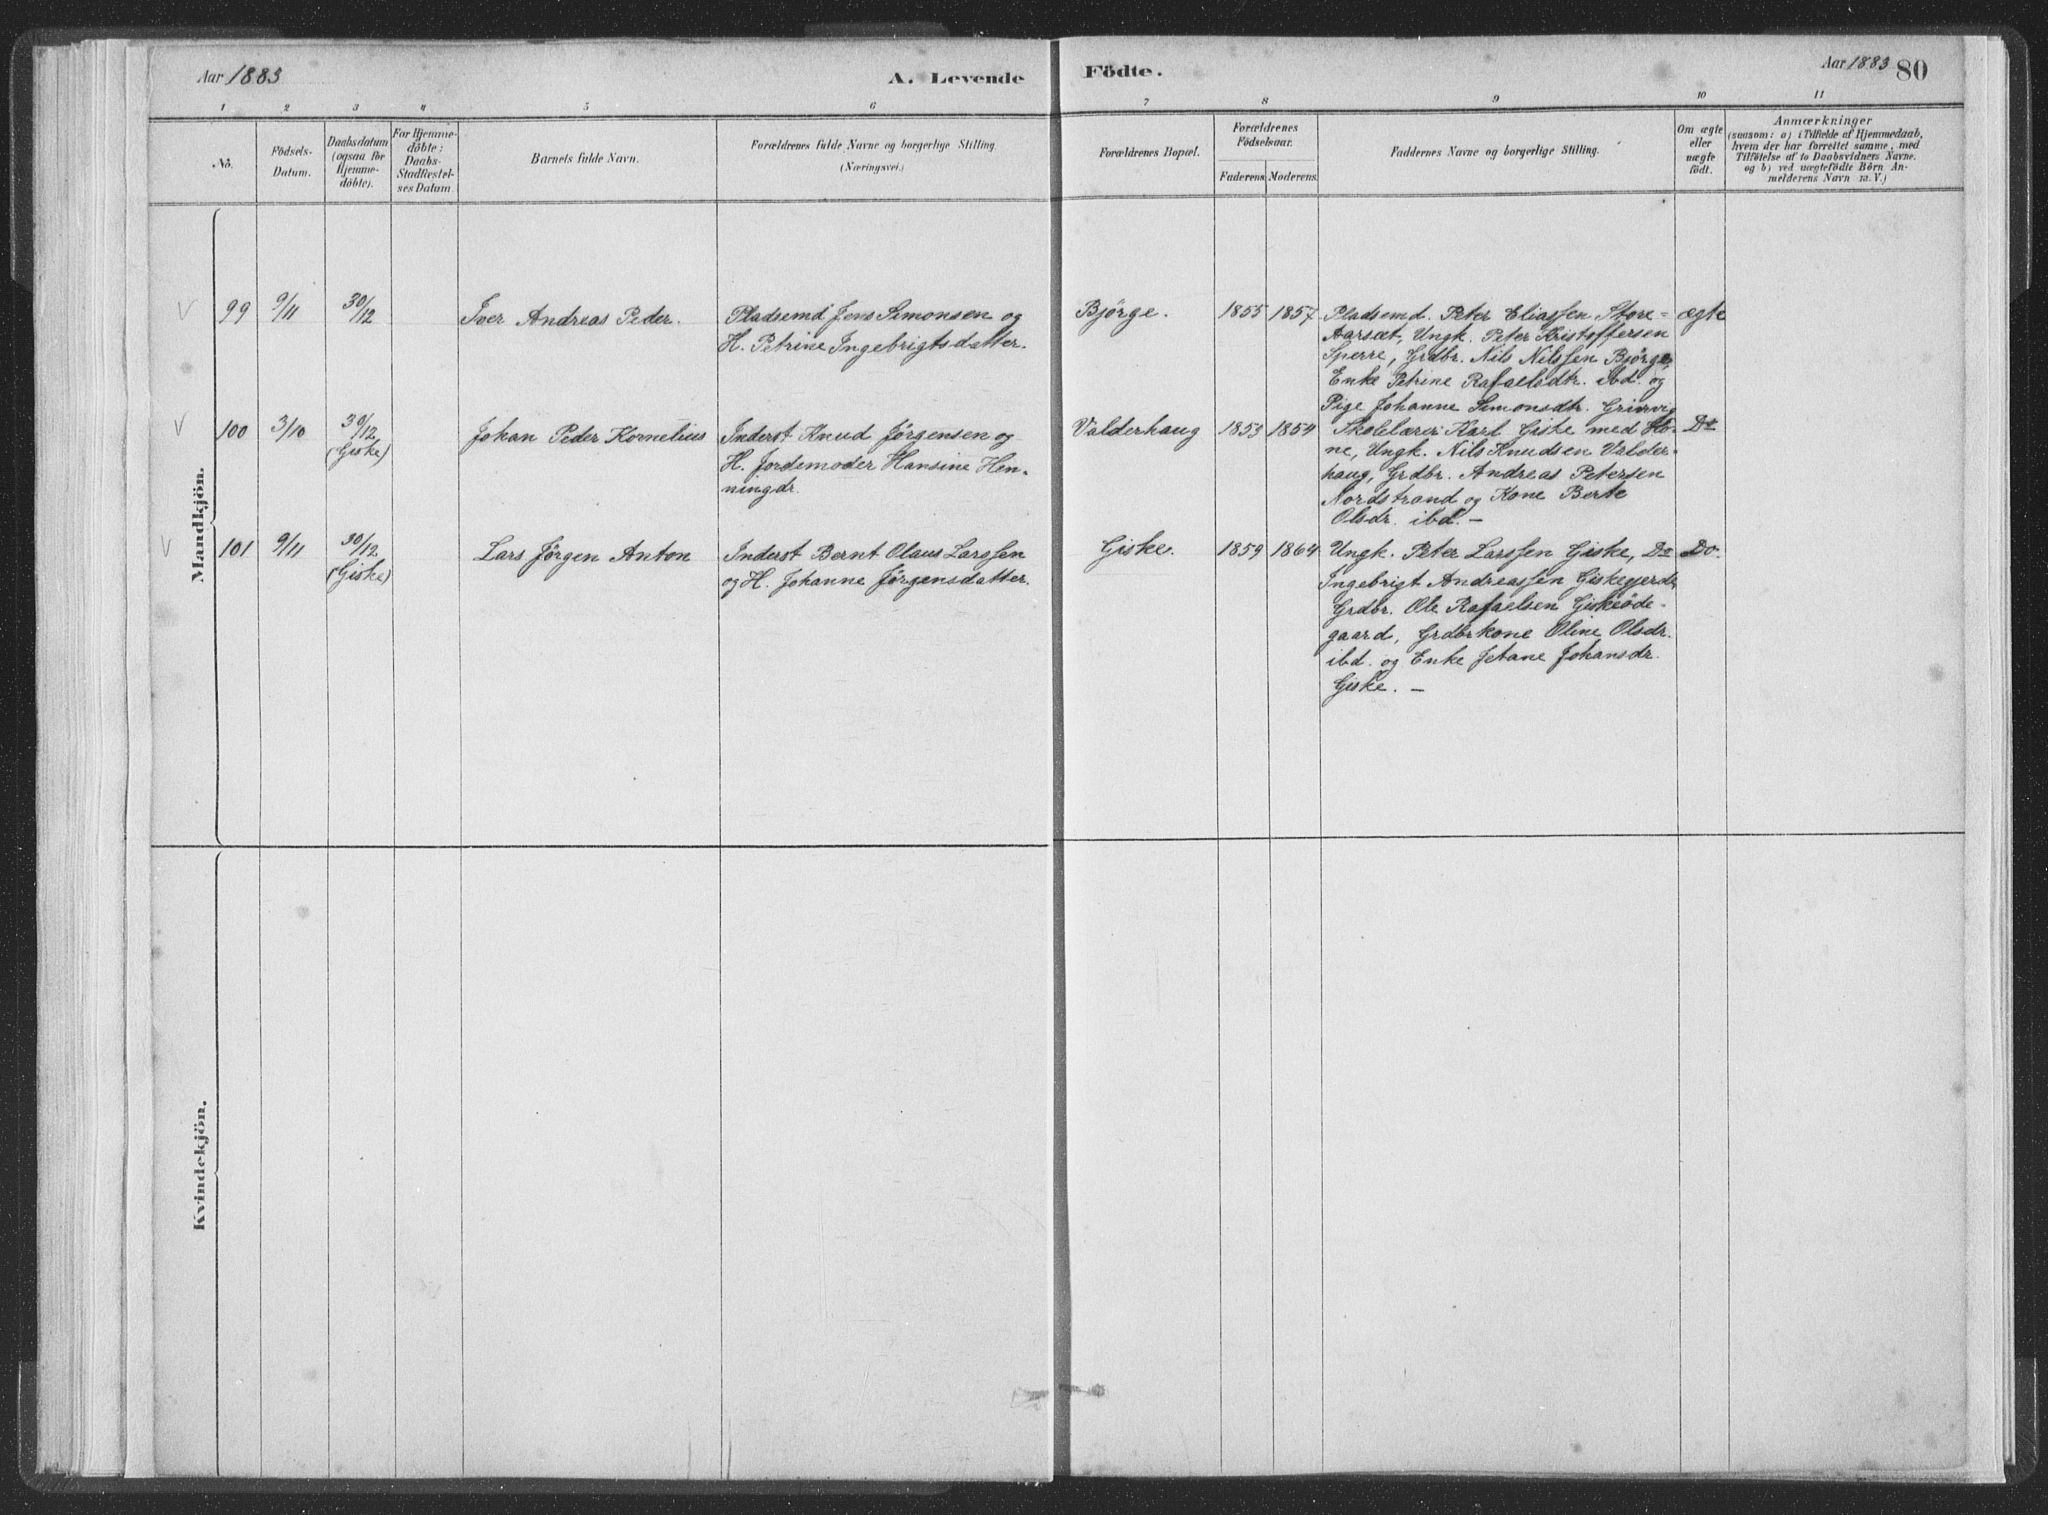 Aar 1883
A. Levende Fødte.
Aar 1883 80
1 2 3 4 5 6 7 8 9 10 11
No.
Födsels-
Datum.
Daabsdatum
(ogsaa for
Hjemme-
döbte).
For Hjemme-
döbte:
Daabs-
Stadfæstel-
ses Datum
Barnets fulde Navn.
Forældrenes fulde Navne og borgerlige Stilling.
(Næringsvei.)
Forældrenes Bopæl.
Forældrenes
Födselsaar.
Faderens. Moderens.
Faddernes Navne og borgerlige Stilling.
Om ægte
eller
uægte
födt.
Anmærkninger
(saasom: a) i Tilfælde af Hjemmedaab,
hvem der har forrettet samme, med
Tilföielse af to Daabsvidners Navne,
og b) ved uægtefödte Börn An-
melderens Navn m.V.)
Mandkjön.
99 9/11 30/12
Iver Andreas Peder.
Pladsemd Jens Simonsen og
H. Petrine Ingebrigtsdatter.
Bjørge.
1855 1857
Pladsemd. Peter Eliassen Store-
Aarsæt, Ungk. Peter Kristoffersen
Sperre, Grdbr. Nils Nilssen Bjørge,
Enke Petrine Rafaelsdtr. ibd. og
Pige Johanne Simonsdtr.
ægte
100 3/10 30/12
(Giske)
Johan Peder Kornelius
Inderst Knud Jørgensen og
H. Jordemoder Hansine Hen-
ningdr.
Valderhaug
1853 1854
Skolelærer Karl Giske med Ko-
ne, Ungk. Nils Knudsen Valder-
haug, Grdbr. Andreas Petersen
Nordstrand og Kone Berte
Olsdr. ibd. —
Do
101 9/11 30/12
(Giske)
Lars Jørgen Anton
Inderst Bernt Olaus Larssen
og H. Johanne Jørgensdatter.
Giske.
1859 1864
Ungk. Peter Larssen Giske, Do
Ingebrigt Andreassen Giskegjerde,
Grdbr. Ole Rafaelsen Giskeøde-
gaard, Grdbrkone Oline Olsdr.
ibd. og Enke Jetane Johansdr.
Giske. —
Do.
Kvindekjön.